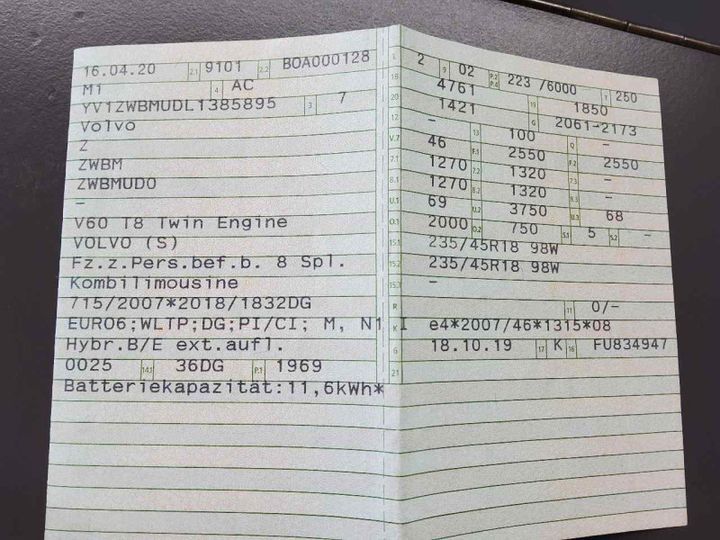 16.04.20 2.1 9101 2.2 BOA000128
M1 4 AC
YV1ZWBMUDL1385895 3 7
Volvo
Z
ZWBM
ZWBMUD0
-
V60 T8 Twin Engine
VOLVO (S)
Fz.z.Pers.bef.b. 8 Spl.
Kombilimousine
715/2007*2018/1832DG
EURO6;WLTP;DG;PI/CI; M, N1 I
Hybr.B/E ext.aufl.
0025 14.1 36DG P.1 1969
Batteriekapazität:11,6kWh*
L 2 9 02 P.2 P.4 223 /6000 T 250
18 4761 19 1850
20 1421 G 2061-2173
12 - 13 100 Q -
V.7 46 F.1 2550 F.2 2550
7.1 1270 7.2 1320 7.3 -
8.1 1270 8.2 1320 8.3 -
U.1 69 U.2 3750 U.3 68
O.1 2000 O.2 750 S.1 5 S.2 -
15.1 235/45R18 98W
15.2 235/45R18 98W
15.3 -
R 11 0/-
K e4*2007/46*1315*08
6 18.10.19 17 K 16 FU834947
21